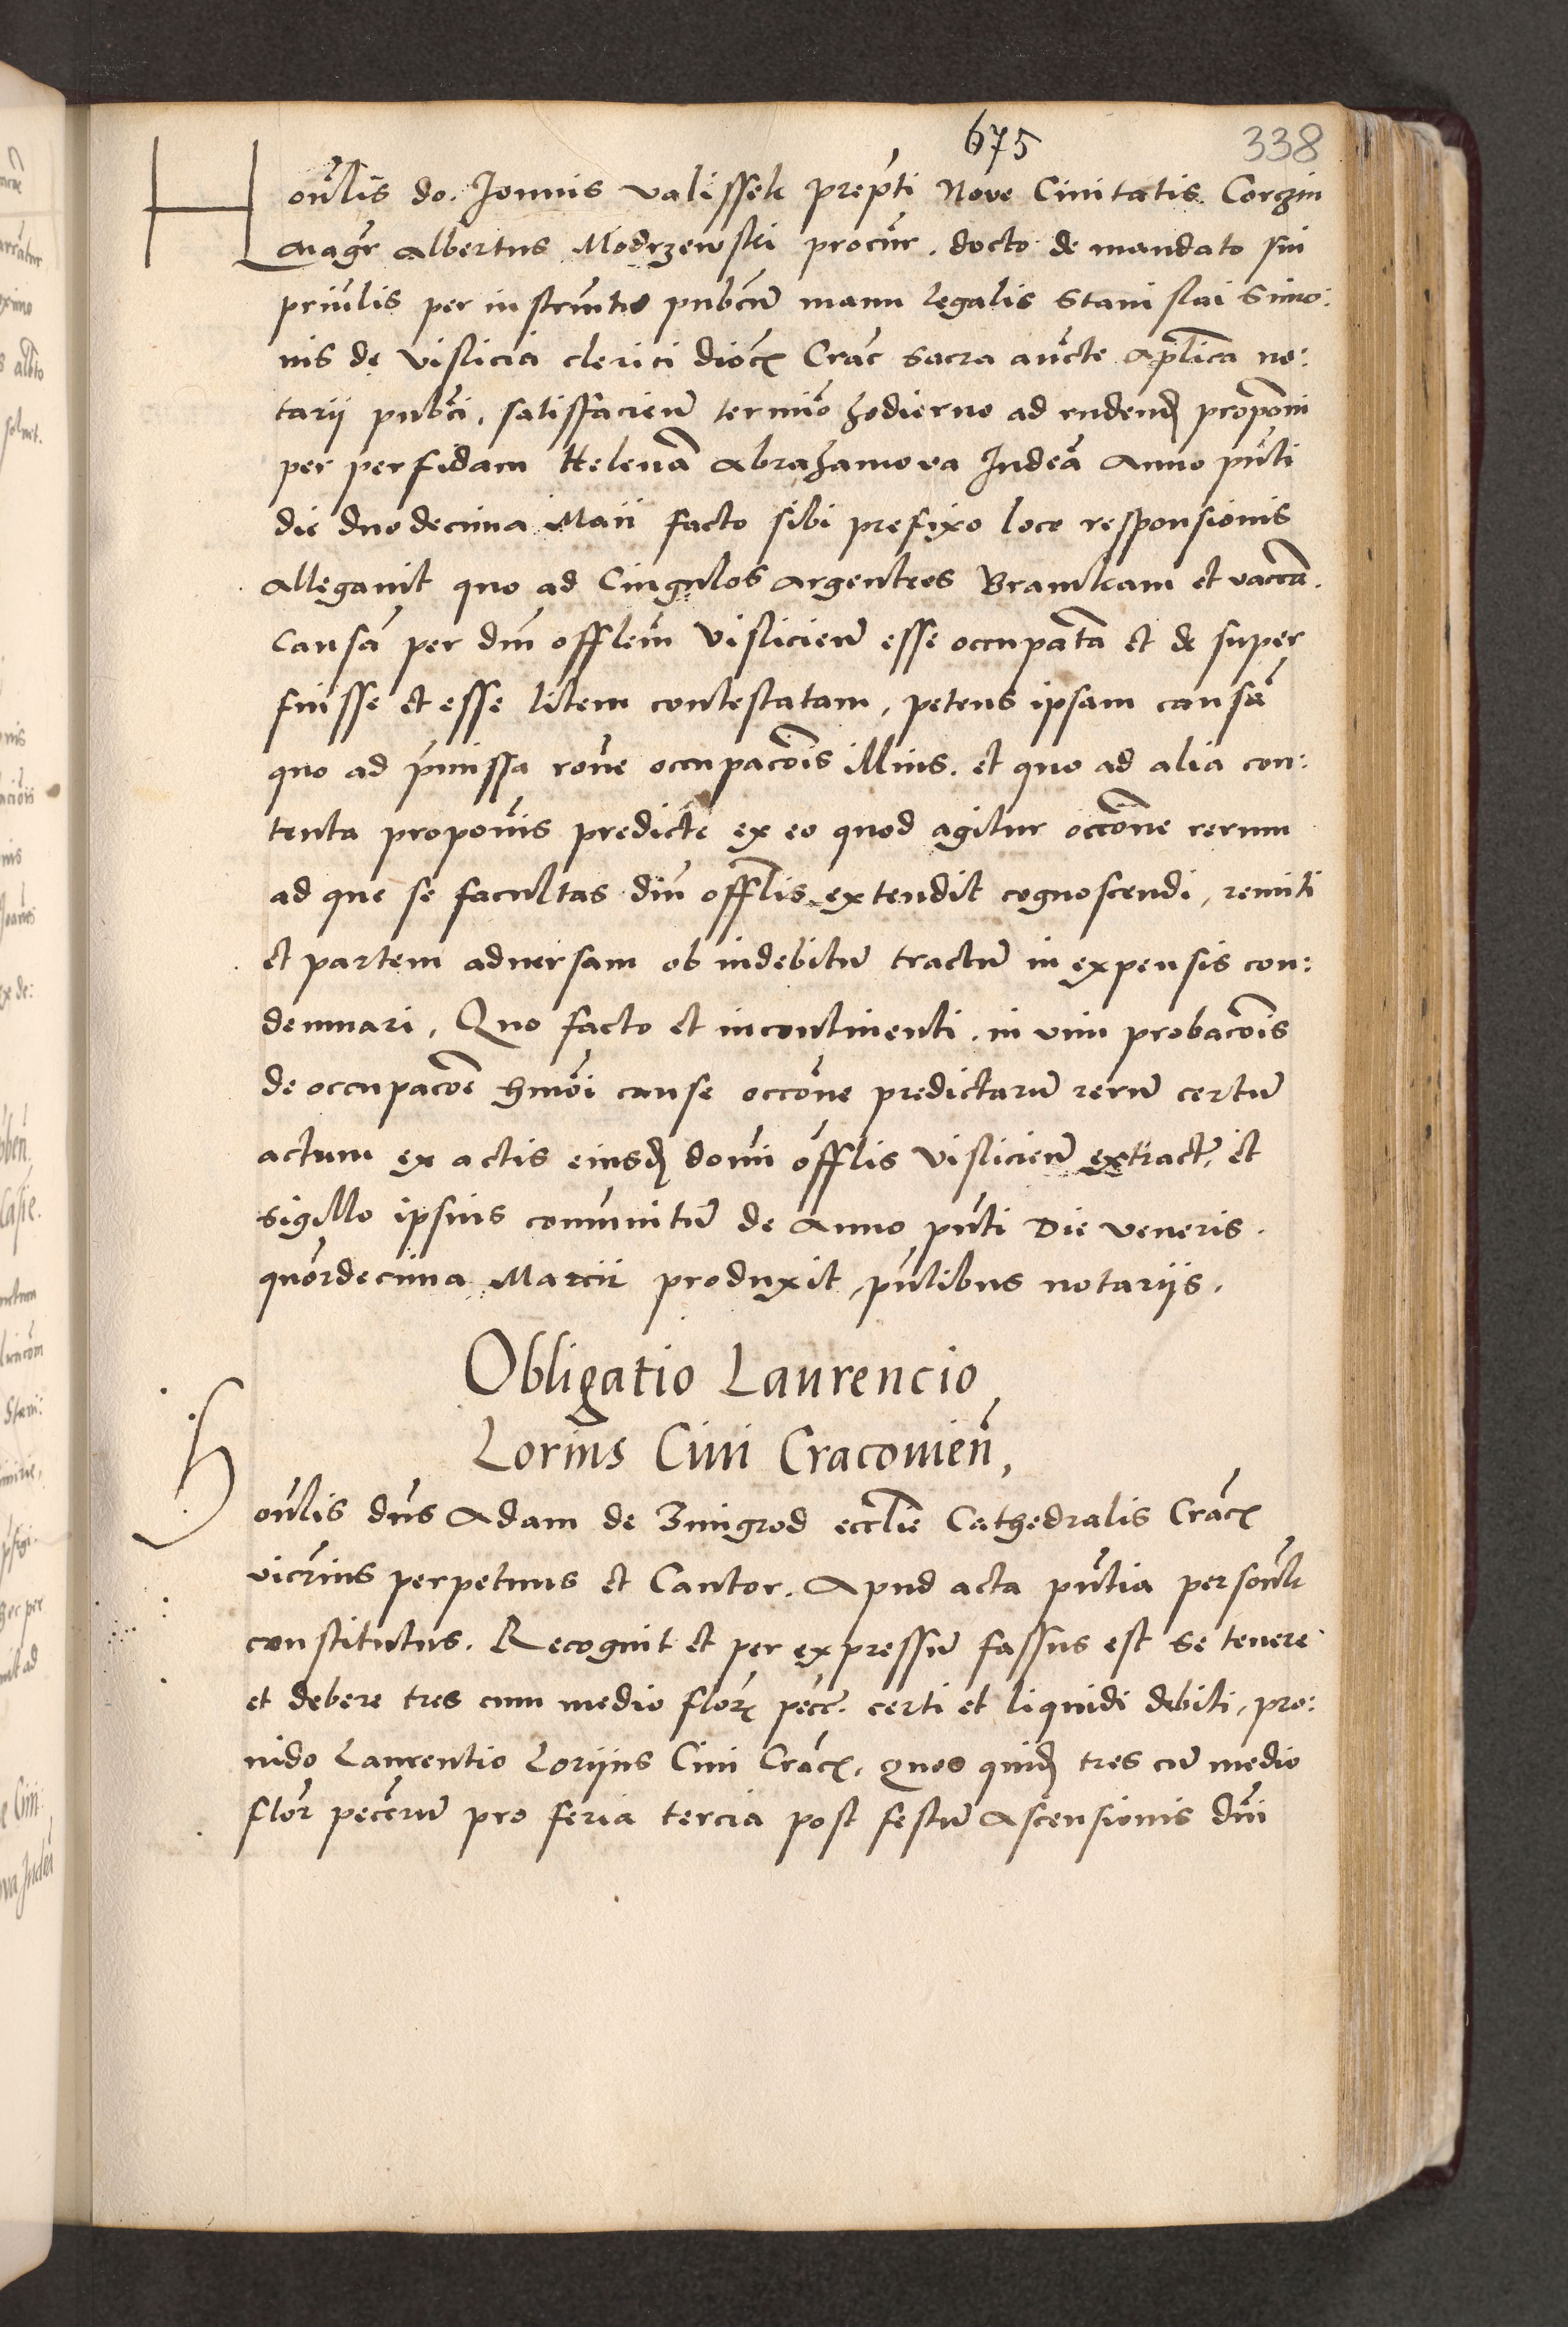 675
338
Honlis do. Joannis Valissek prepti Nove Civitatis Corczin
Magr Albertus Modrzewski procur. docto de mandato sui
prinlis per instrumto pubcum manu legalis Stanislai Simo:
nis de Vislicia clerici dioc Crac sacra aucte aplica no:
tarii pubci, satisfacien termino hodierno ad rndend proponi
per perfidam Helenam Abrahamova Judeam Anno pnti
die duodecima Maii facto sibi prefixo loco responsionis
allegavit quo ad Cingulos argenteos Bramkam et vaccam.
Causam per dnm offlem Vislicien esse occupatam et de super
fuisse et esse litem contestatam, petens ipsam causam
quo ad pmissa rone occupacois illius. et quo ad alia con:
tenta proponis predicte ex eo quod agitur occone rerum
ad que se facultas dni offlis extendit cognoscendi, remiti
et partem adversam ob indebitum tractum in expensis con:
demnari, Quo facto et incontinenti. in vim probacois
de occupacoe hmoi cause occone predictarum rerum certum
actum ex actis eiusd domi offlis Vislicien extractum et
sigillo ipsius communitum de Anno pnti Die veneris.
quordecima Marcii produxit, pntibus notariis.
Obligatio Laurencio
Lorinus Civi Cracovien,
Honlis dns Adam de Zmigrod ecclie Cathedralis Crac
vicrius perpetuus et Cantor. Apud acta pntia personlr
constitutus. Recognit et per expressum fassus est se tenere
et debere tres cum medio flor pecc. certi et liquidi debiti, pro:
vido Laurentio Lorijns Civi Crac. quos quid tres cum medio
flor peccrum pro feria tercia post festum Ascensionis dni